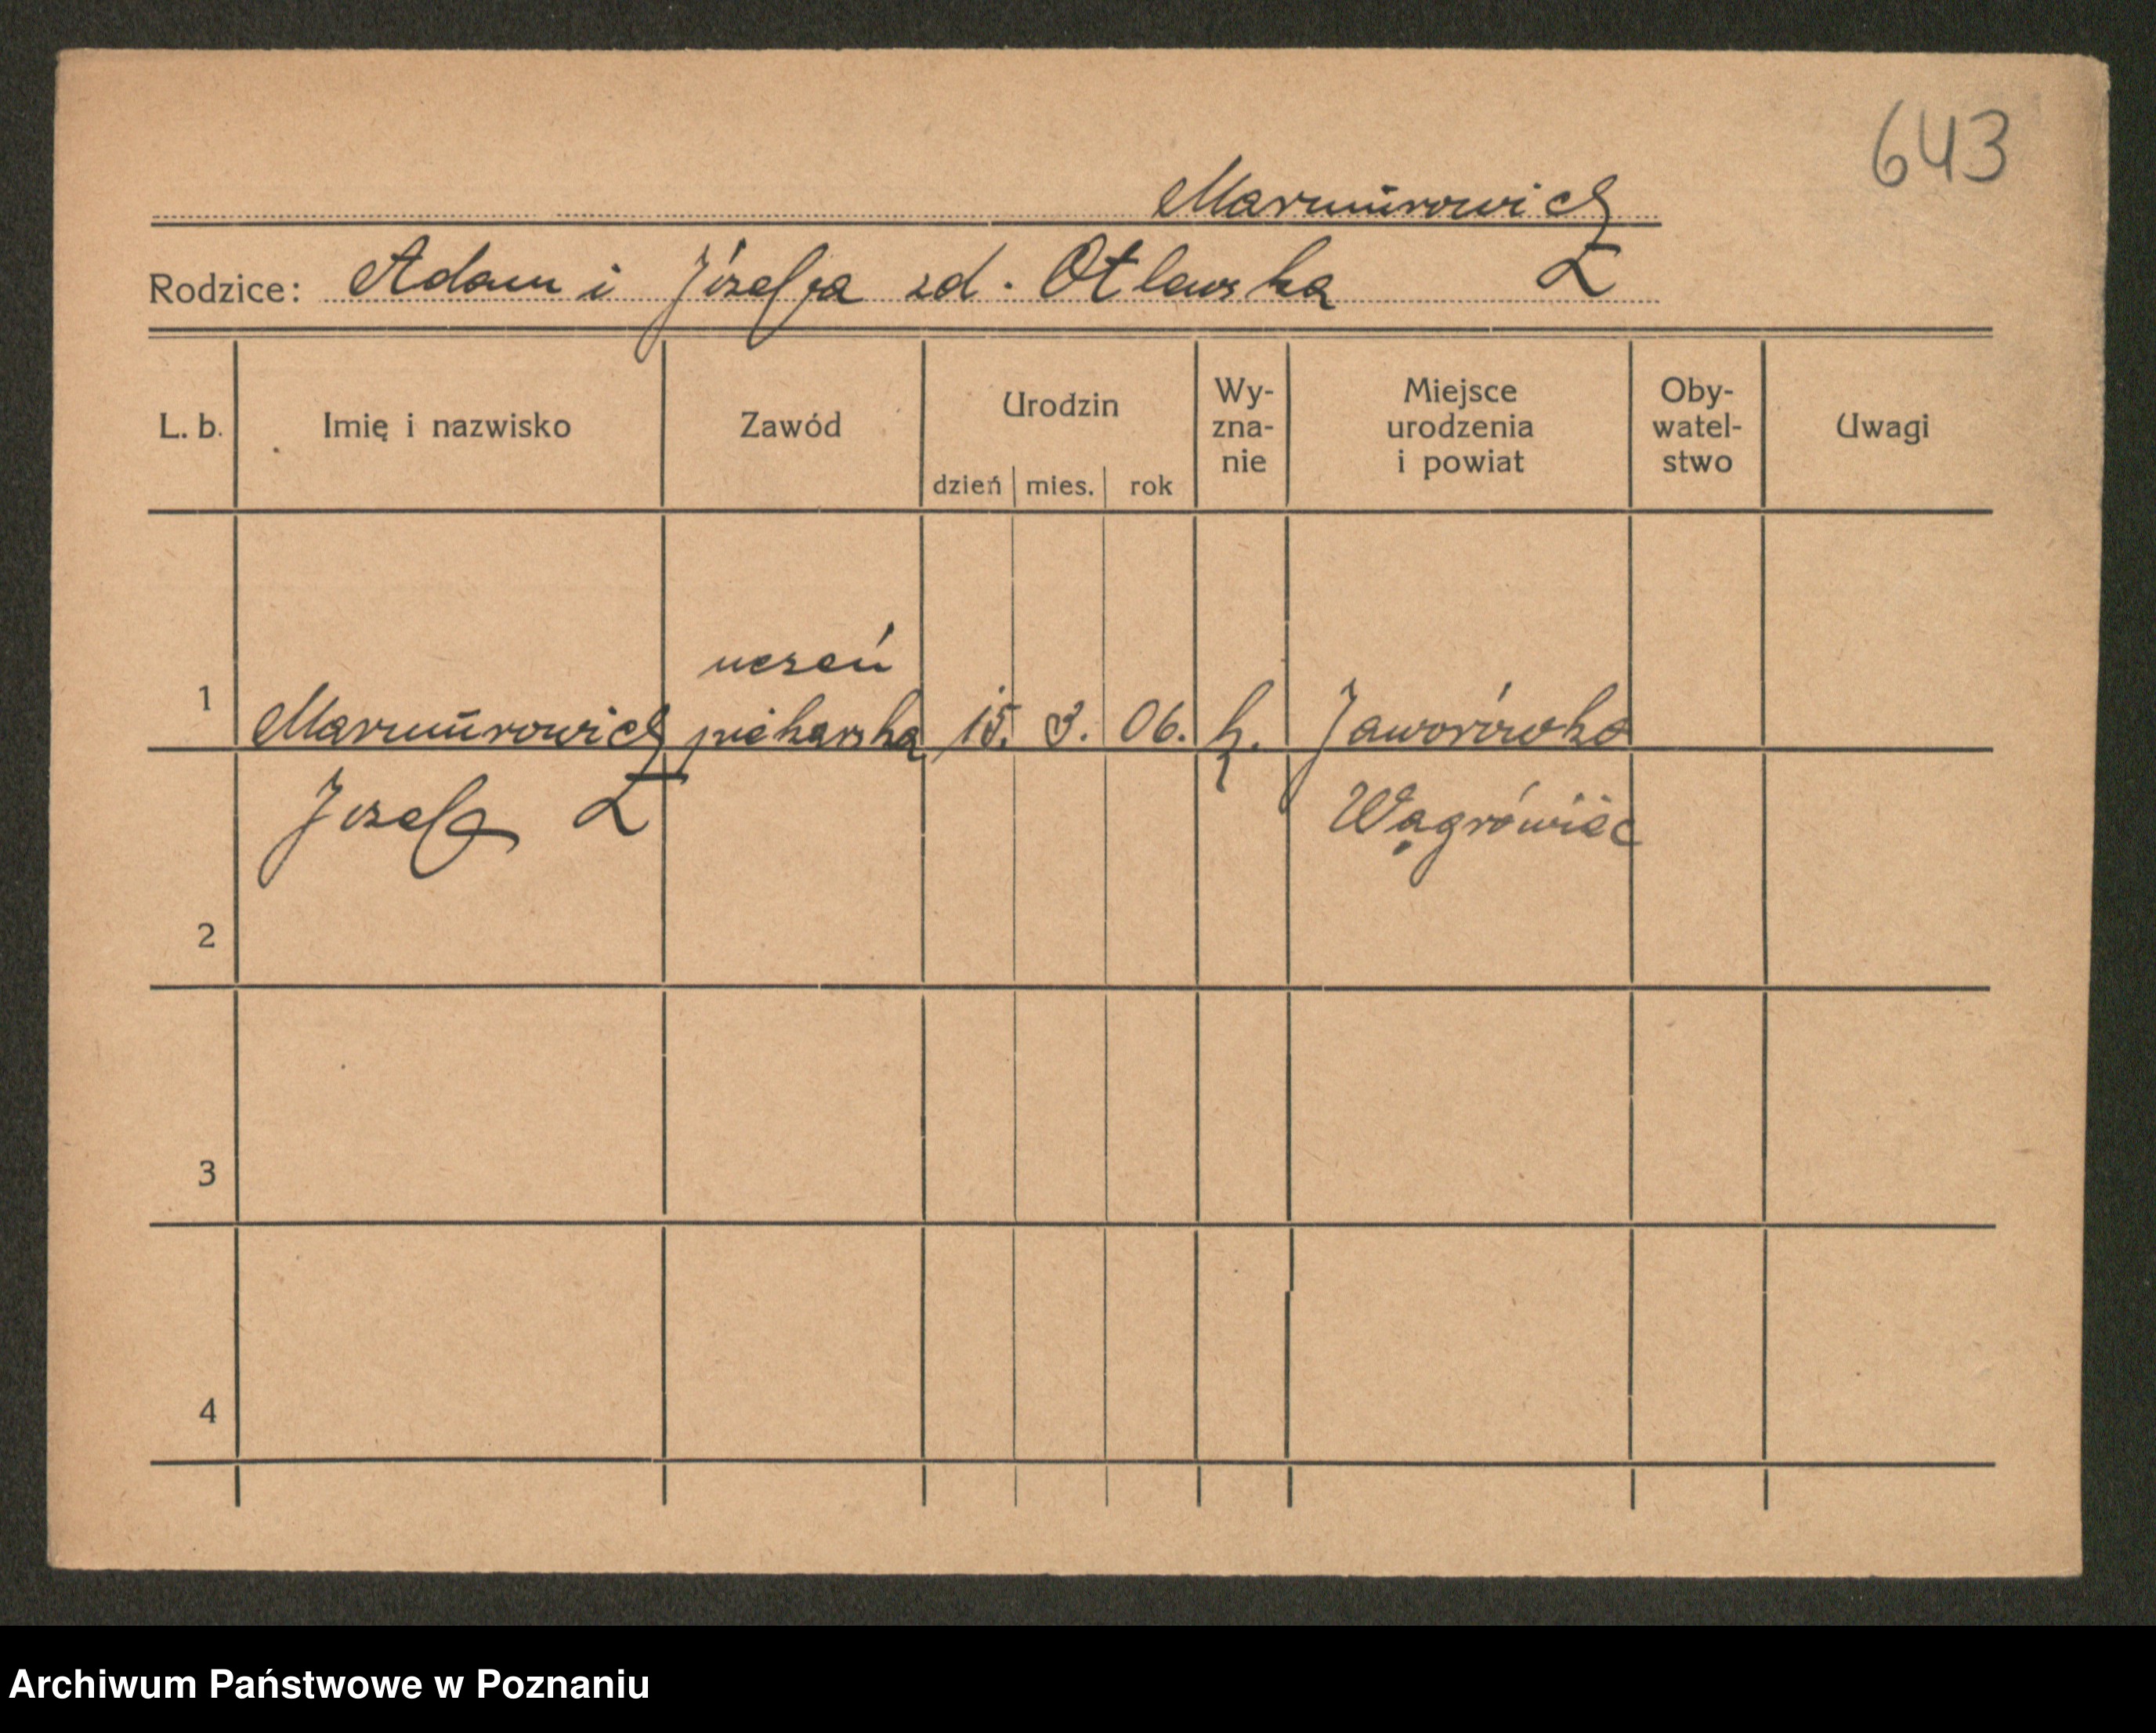 643
Marmurowicz
Rodzice: Adam i Józefa zd. Otlewska
L. b. Imię i nazwisko Zawód Urodzin dzień mies. rok Wy-zna-nie Miejsce urodzenia i powiat Oby-watel-stwo Uwagi
uczeń
1 Marmurowicz piekarska 15. 3. 06. k. Jaworówko
Jozef Wągrówiec
2
3
4
Archiwum Państwowe w Poznaniu